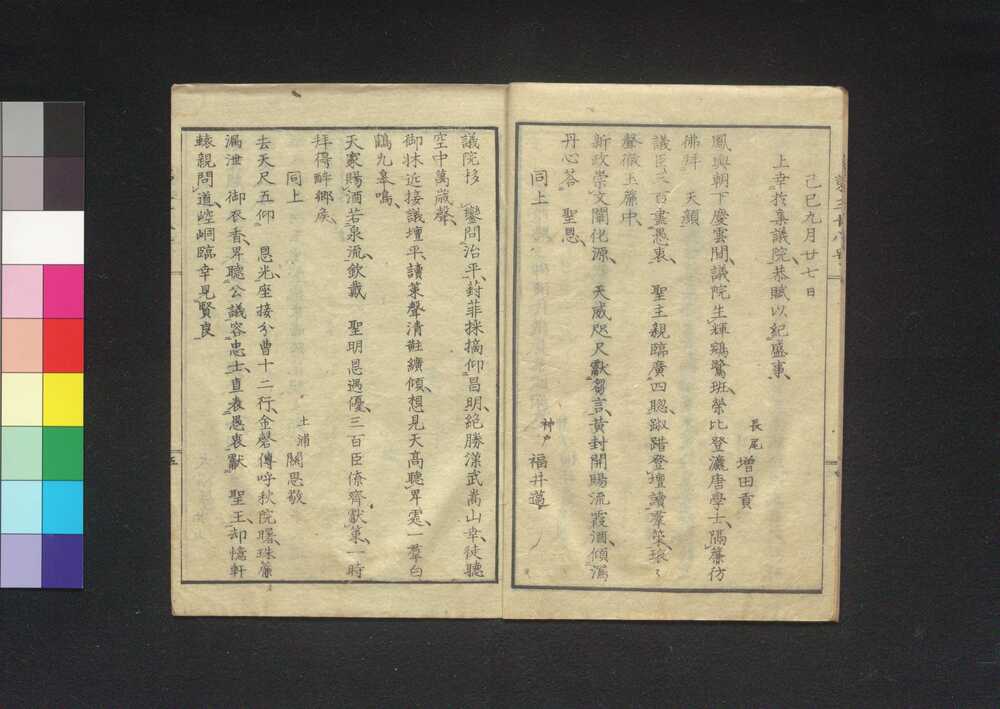 己巳九月廿七日
上幸于集議院恭賦以紀盛事
長尾 増田貢
鳳輿朝下慶雲間議院生輝鵷鷺班榮比登瀛唐學士隔簾仿
佛拜 天顔
議臣三百盡愚衷 聖主親臨廣四聰踧踖登壇讀羣策琅〻
聲徹玉簾中
新政崇文闡化源 天威咫尺獻芻言黄封開賜流霞酒傾瀉
丹心荅 聖恩
同上
神戸 福井
議院移 鑾問治平葑菲採摘仰昌明絶勝漢武嵩山幸徒聽
空中萬歳聲
御牀近接議壇平讀策聲清黈纊傾想見天高聽卑處一羣白
鶴九皋鳴
天家賜酒若泉流飲戴 聖明恩遇優三百臣僚齊獻策一時
拜得醉郷侯
同上
土浦 關思敬
去天尺五仰 恩光座接分曹十二行金磬傳呼秋院曙珠簾
漏泄 御衣香昇聽公議容忠士直表愚衷獻 聖王却憶軒
轅親問道崆峒臨幸見賢良
五